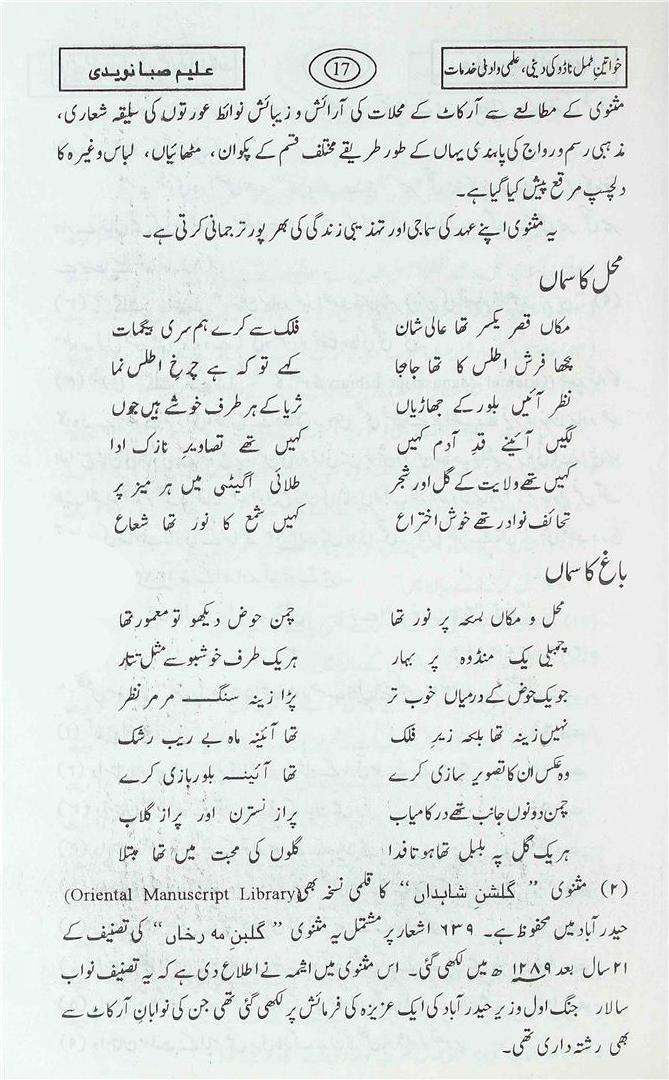 خواتین ٹمل ناڈو کی دینی، علمی و ادبی خدمات 17 علیم صبا نویدی
مثنوی کے مطالعے سے آرکاٹ کے محلات کی آرائش و زیبائش نوائط عورتوں کی سلیقہ شعاری،
مذہبی رسم و رواج کی پابندی یہاں کے طور طریقے مختلف قسم کے پکوان، مٹھائیاں، لباس وغیرہ کا
دلچسپ مرقع پیش کیا گیا ہے۔
یہ مثنوی اپنے عہد کی سماجی اور تہذیبی زندگی کی بھرپور ترجمانی کرتی ہے۔
محل کا سماں
مکاں قصر یکسر تھا عالی شان فلک سے کرے ہم سری بیگمات
بچھا فرش اطلس کا تھا جابجا کہے تو کہ ہے چرخ اطلس نما
نظر آئیں بلور کے جھاڑیاں ثریا کے ہر طرف خوشے ہیں جوں
لگیں آئینے قد آدم کہیں کہیں تھے تصاویر نازک ادا
کہیں تھے ولایت کے گل اور شجر طلائی اگیٹی میں ہر میز پر
تحائف نوادر تھے خوش اختراع کہیں شمع کا نور تھا شعاع
باغ کا سماں
محل و مکاں بمکہ پر نور تھا چمن حوض دیکھو تو معمور تھا
چمبیلی یک منڈوہ پر بہار ہریک طرف خوشبو سے مثل تتار
جو یک حوض کے درمیاں خوب تر پڑا زینہ سنگ مرمر نظر
نہیں زینہ تھا بلکہ زیر فلک تھا آئینہ ماہ بے ریب رشک
وہ عکس ان کا تصویر سازی کرے تھا آئینہ بلور بازی کرے
چمن دونوں جانب تھے در کامیاب پراز نسترن اور پراز گلاب
ہریک گل پہ بلبل تھا ہوتا فدا گلوں کی محبت میں تھا مبتلا
(۲) مثنوی ”گلشن شاہداں“ کا قلمی نسخہ بھی (Oriental Manuscript Library)
حیدرآباد میں محفوظ ہے۔ ۶۳۹ اشعار پر مشتمل یہ مثنوی ”گلبن مہ رخاں“ کی تصنیف کے
۲۱ سال بعد ۱۲۸۹ ھ میں لکھی گئی۔ اس مثنوی میں اثمہ نے اطلاع دی ہے کہ یہ تصنیف نواب
سالار جنگ اول وزیر حیدرآباد کی ایک عزیزہ کی فرمائش پر لکھی گئی تھی جن کی نوابان آرکاٹ سے
بھی رشتہ داری تھی۔